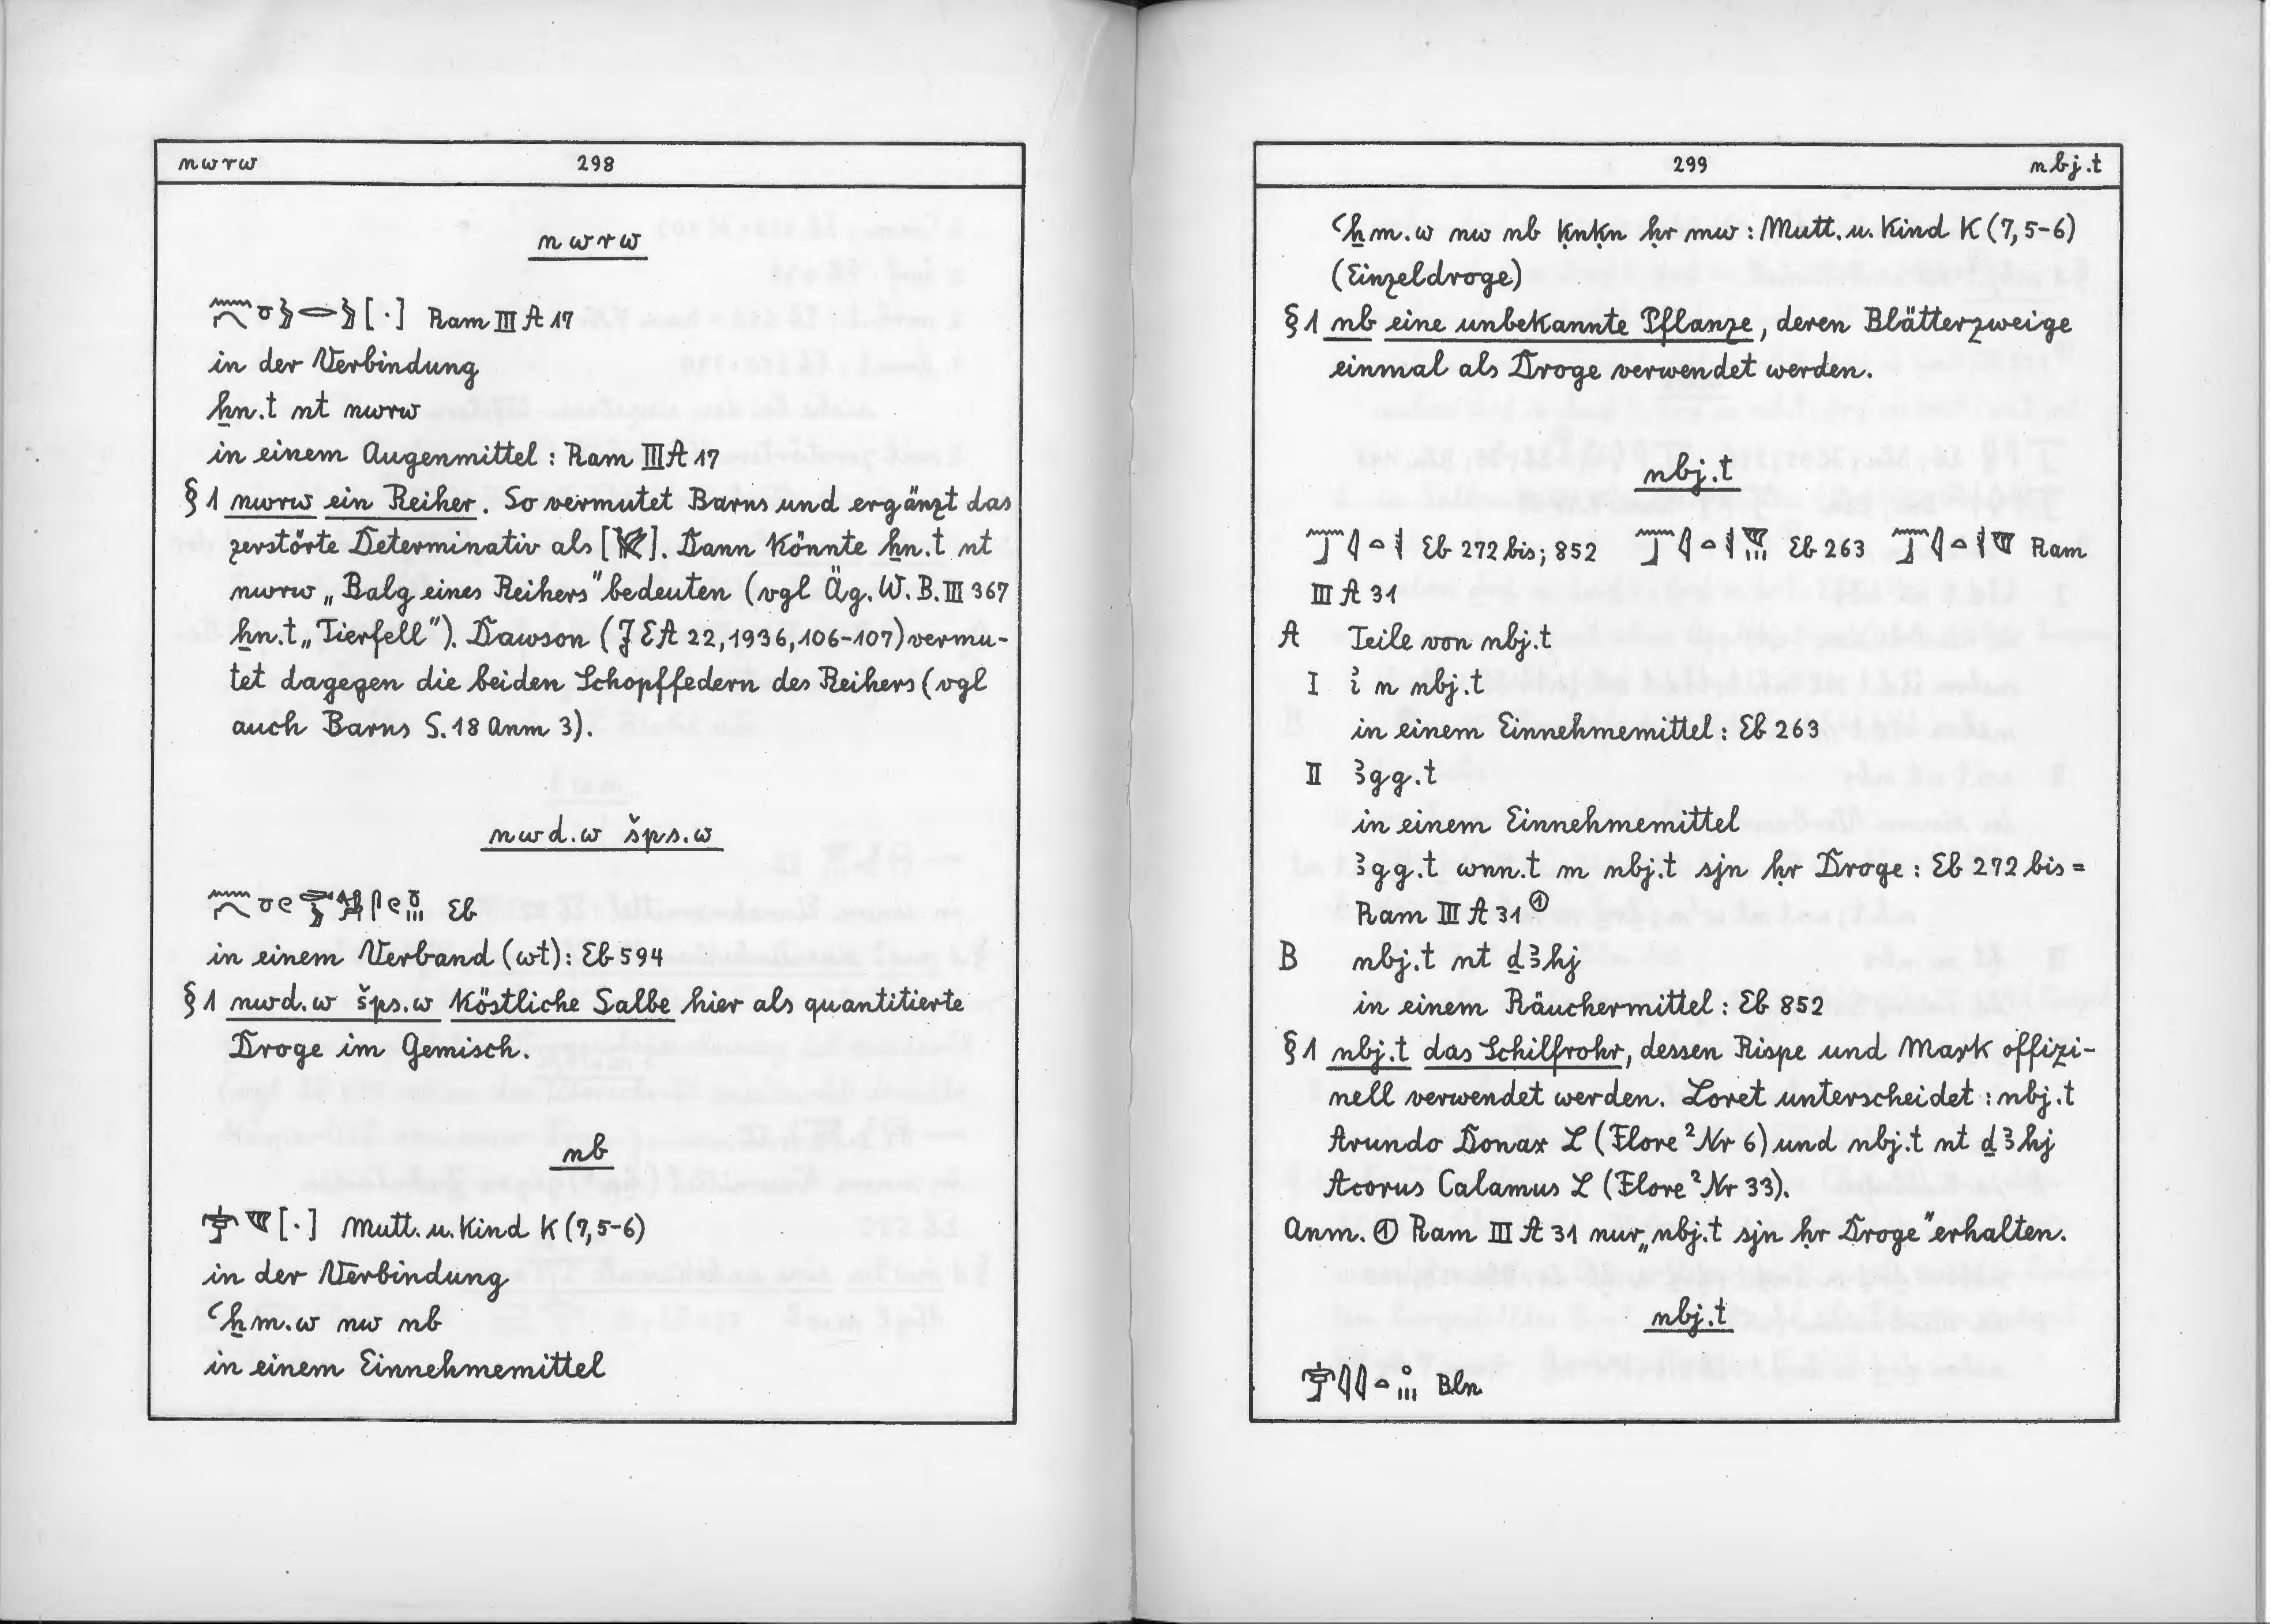 nwrw 298
nwrw
[.] Ram III A 17
in der Verbindung
ẖn.t nt nwrw
in einem Augenmittel : Ram III A 17
§ 1 nwrw ein Reiher. So vermutet Barns und ergänzt das
zerstörte Determinativ als [ ]. Dann könnte ẖn.t nt
nwrw „Balg eines Reihers" bedeuten (vgl Äg. W. B. III 367
ẖn.t „Tierfell"). Dawson (JEA 22, 1936, 106-107) vermu-
tet dagegen die beiden Schopffedern des Reihers (vgl
auch Barns S. 18 Anm 3).
nwd.w šps.w
Eb
in einem Verband (wt) : Eb 594
§ 1 nwd.w šps.w köstliche Salbe hier als quantitierte
Droge im Gemisch.
nb
[.] Mutt. u. Kind K (7, 5-6)
in der Verbindung
ꜥẖm.w nw nb
in einem Einnehmemittel
299 nbj.t
ꜥẖm.w nw nb ḳnḳn ḥr mw : Mutt. u. Kind K (7, 5-6)
(Einzeldroge)
§ 1 nb eine unbekannte Pflanze, deren Blätterzweige
einmal als Droge verwendet werden.
nbj.t
Eb 272 bis; 852 Eb 263 Ram
III A 31
A Teile von nbj.t
I ꞽ n nbj.t
in einem Einnehmemittel : Eb 263
II ꜣgg.t
in einem Einnehmemittel
ꜣgg.t wnn.t m nbj.t sjn ḥr Droge : Eb 272 bis =
Ram III A 31 ①
B nbj.t nt ḏꜣhj
in einem Räuchermittel : Eb 852
§ 1 nbj.t das Schilfrohr, dessen Rispe und Mark offizi-
nell verwendet werden. Loret unterscheidet : nbj.t
Arundo Donax L (Flore² Nr 6) und nbj.t nt ḏꜣhj
Acorus Calamus L (Flore² Nr 33).
Anm. ① Ram III A 31 nur „nbj.t sjn ḥr Droge" erhalten.
nbj.t
Bln